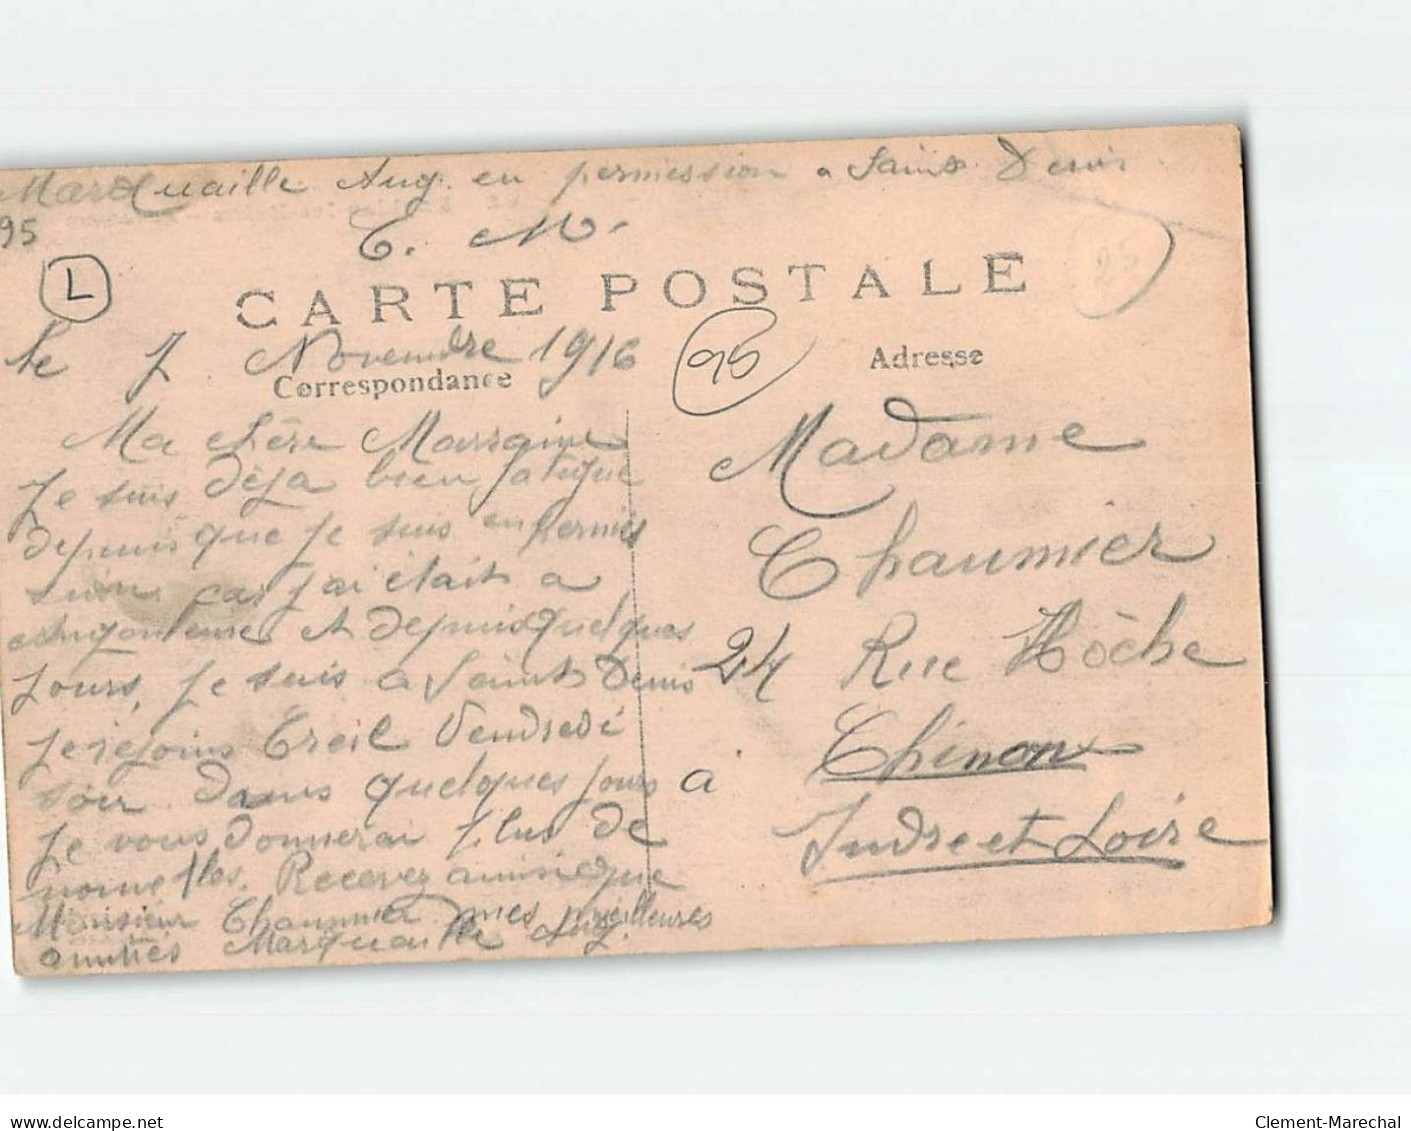 Marquaille Aug. en permission a Saint Denis
95
C. M.
L
25
CARTE POSTALE
le 7 Novembre 1916
95
Correspondance
Adresse
Ma chère Marraine
Je suis déja bien fatigue
depuis que je suis en permis
sion car j'ai était a
Angouleme et depuis quelques
jours, je suis a Saint Denis
je rejoins Creil Vendredi
soir. Dans quelques jours
je vous donnerai plus de
nouvelles. Recevez ainsi que
Monsieur Chaumier mes meilleures
amitiés Marquaille Aug.
Madame
Chaumier
24 Rue Hôche
à Chinon
Indre et Loire
delcampe.net
Clement-Marechal